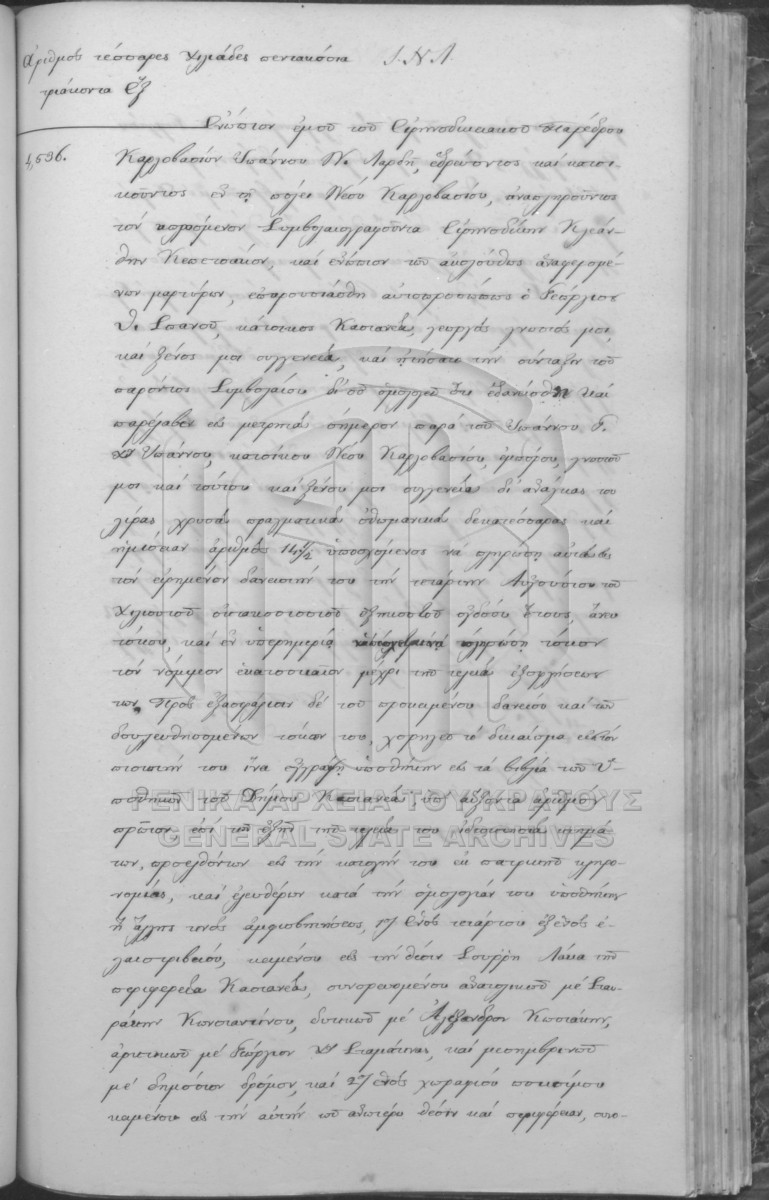 Ἀριθμὸς τέσσαρες χιλιάδες πεντακόσια Ι.Ν.Λ.
τριάκοντα ἓξ
Ἐνώπιον ἐμοῦ τοῦ Εἰρηνοδικειακοῦ Παρέδρου
4,536. Καρλοβασίων Ἰωάννου Ν. Λαρδῆ, ἑδρεύοντος καὶ κατοι-
κοῦντος ἐν τῇ πόλει Νέου Καρλοβασίου, ἀναπληροῦντος
τὸν Συμβολαιογραφοῦντα Εἰρηνοδίκην Κλεάν-
θην καὶ ἐνώπιον τῶν ἀκολούθως ἀναφερομέ-
νων μαρτύρων, ἐπαρουσιάσθη αὐτοπροσώπως ὁ Γεώργιος
Σπανοῦ, κάτοικος Καστανέας, γεωργὸς γνωστός μοι,
καὶ ξένος μοι συγγενείας, καὶ ᾐτήσατο τὴν σύνταξιν τοῦ
παρόντος Συμβολαίου δι' οὗ ὁμολογεῖ ὅτι ἐδανείσθη καὶ
παρέλαβεν εἰς μετρητὰ σήμερον παρὰ τοῦ Ἰωάννου Γ.
Χ" Ἰωάννου, κατοίκου Νέου Καρλοβασίου, ἐμπόρου, γνωστοῦ
μοι καὶ τούτου καὶ ξένου μοι συγγενείας δι' ἀνάγκας του
λίρας χρυσᾶς πραγματικὰς ὀθωμανικὰς δεκατέσσαρας καὶ
ἡμίσειαν ἀριθμὸς 14 1/2 ὑποσχόμενος νὰ πληρώσῃ αὐτὰς εἰς
τὸν εἰρημένον δανειστήν του τὴν τετάρτην Αὐγούστου τοῦ
χιλιοστοῦ ὀκτακοσιοστοῦ ὀγδόου ἔτους, ἄνευ
τόκου, καὶ ἐν ὑπερημερίᾳ πληρώσῃ τόκον
τὸν νόμιμον μέχρι τῆς τελείας ἐξοφλήσεώς
των. Πρὸς ἐξασφάλισιν δὲ τοῦ προκειμένου δανείου καὶ τῶν
δουλευθησομένων τόκων του, χορηγεῖ τὸ δικαίωμα εἰς τὸν
πιστωτήν του ἵνα ἐγγράψῃ ὑποθήκην εἰς τὰ βιβλία τῶν Ὑ-
ποθηκῶν τοῦ Δήμου Καστανέας ὑπ' αὔξοντα ἀριθμὸν
πρῶτον ἐπὶ τῶν ἑξῆς τῆς τελείας του ἰδιοκτησίας κτημά-
των, προελθόντων εἰς τὴν κατοχήν του ἐκ πατρικῆς κληρο-
νομίας, καὶ ἐλευθέρων κατὰ τὴν ὁμολογίαν του ὑποθήκης
ἢ ἄλλης τινὸς ἀμφισβητήσεως, 1ον) Ἑνὸς τετάρτου ἐξ ἑνὸς ἐ-
λαιοτριβείου, κειμένου εἰς τὴν θέσιν Λάκα τῆς
περιφερείας Καστανέας, συνορευομένου ἀνατολικῶς μὲ Σταυ-
ράκην Κωνσταντίνου, δυτικῶς μὲ Ἀλέξανδρον Κωστάκην,
ἀρκτικῶς μὲ Γεώργιον Χ" Σταμάτιας, καὶ μεσημβρινῶς
μὲ δημόσιον δρόμον, καὶ 2ον) ἑνὸς χωραφίου ποτισίμου
κειμένου εἰς τὴν αὐτὴν ὡς ἀνωτέρω θέσιν καὶ περιφέρειαν, συνο-
ΓΕΝΙΚΑ ΑΡΧΕΙΑ ΤΟΥ ΚΡΑΤΟΥΣ
GENERAL STATE ARCHIVES